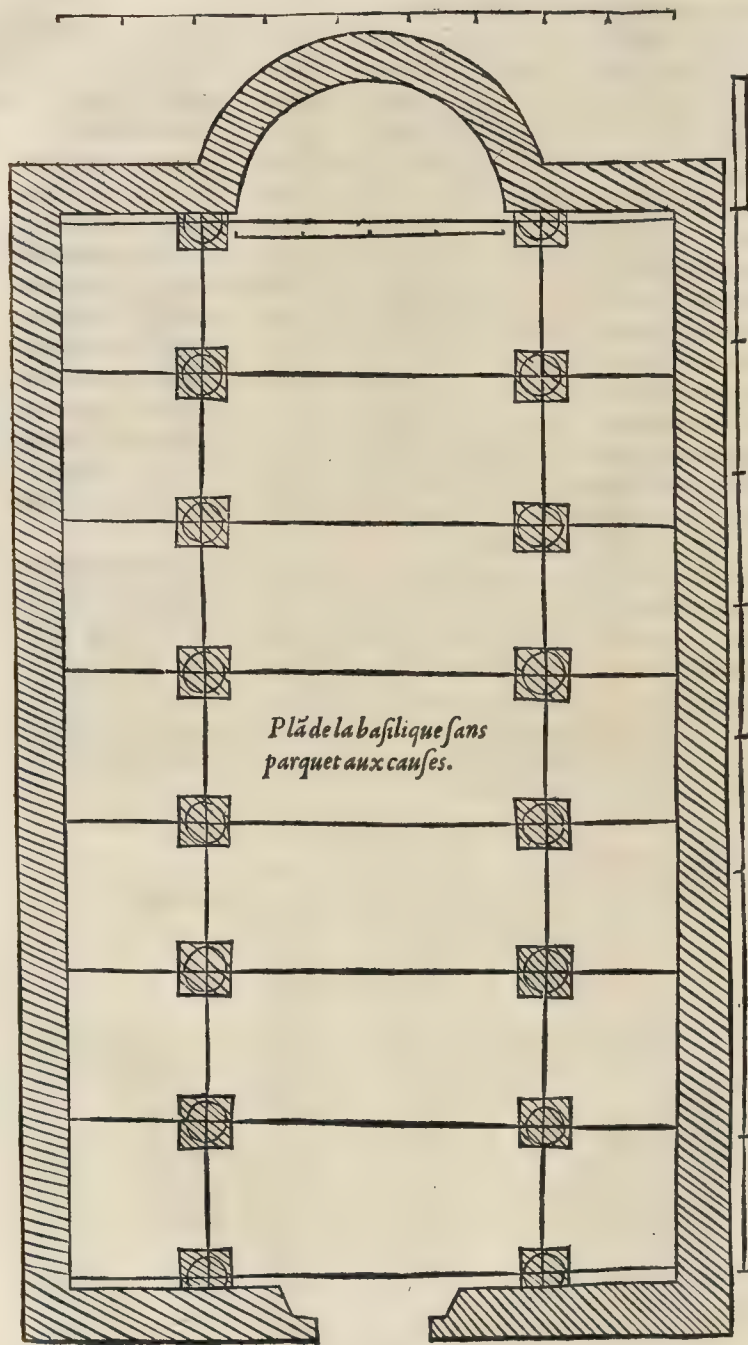 Plã de la baſilique ſans
parquet aux cauſes.